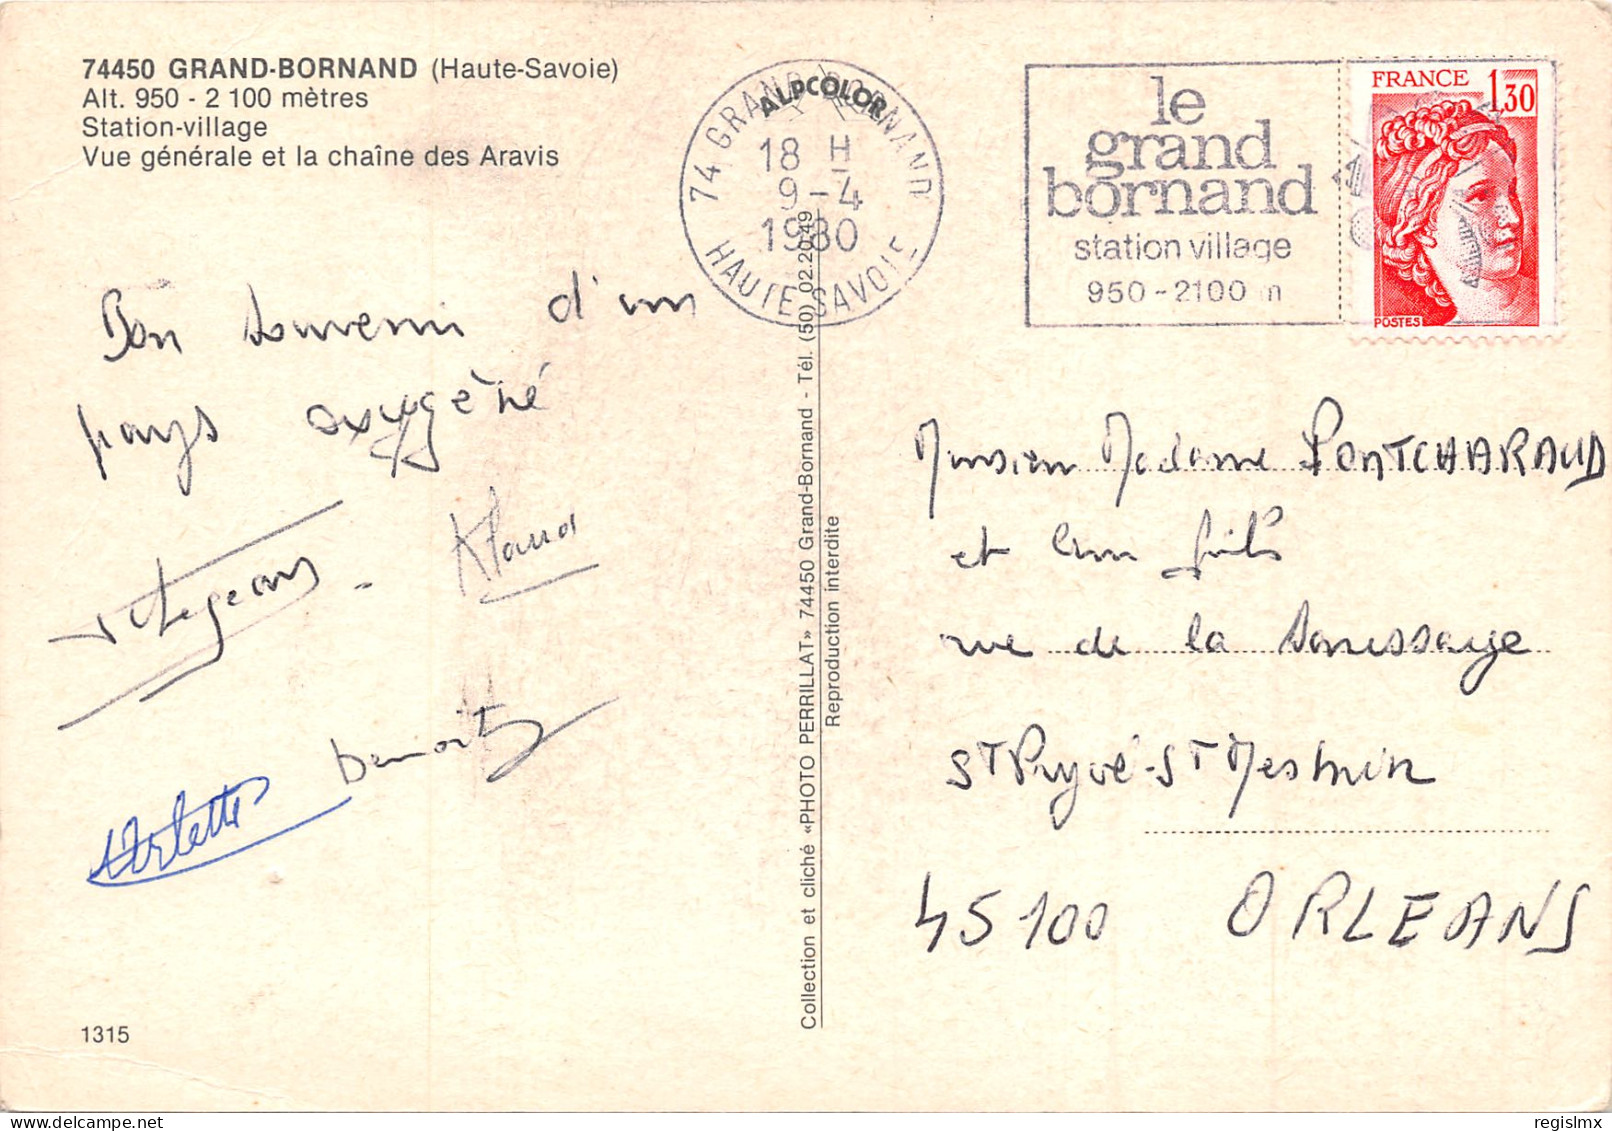 74450 GRAND-BORNAND (Haute-Savoie)
Alt. 950 - 2 100 mètres
Station-village
Vue générale et la chaîne des Aravis
ALPCOLOR
74 GRAND BORNAND
18 H
9-4
1980
HAUTE-SAVOIE
le
grand
bornand
station village
950-2100 m
FRANCE 1,30
POSTES
Bon souvenir d'un
pays oxygéné
Benoit
Arlette
Collection et cliché «PHOTO PERRILLAT» 74450 Grand-Bornand - Tél. (50) 02.20.49
Reproduction interdite
Monsieur Madame PONTCHARAUD
et leur fils
rue de la
St Pryvé-St Mesmin
45100 ORLEANS
1315
regislmx